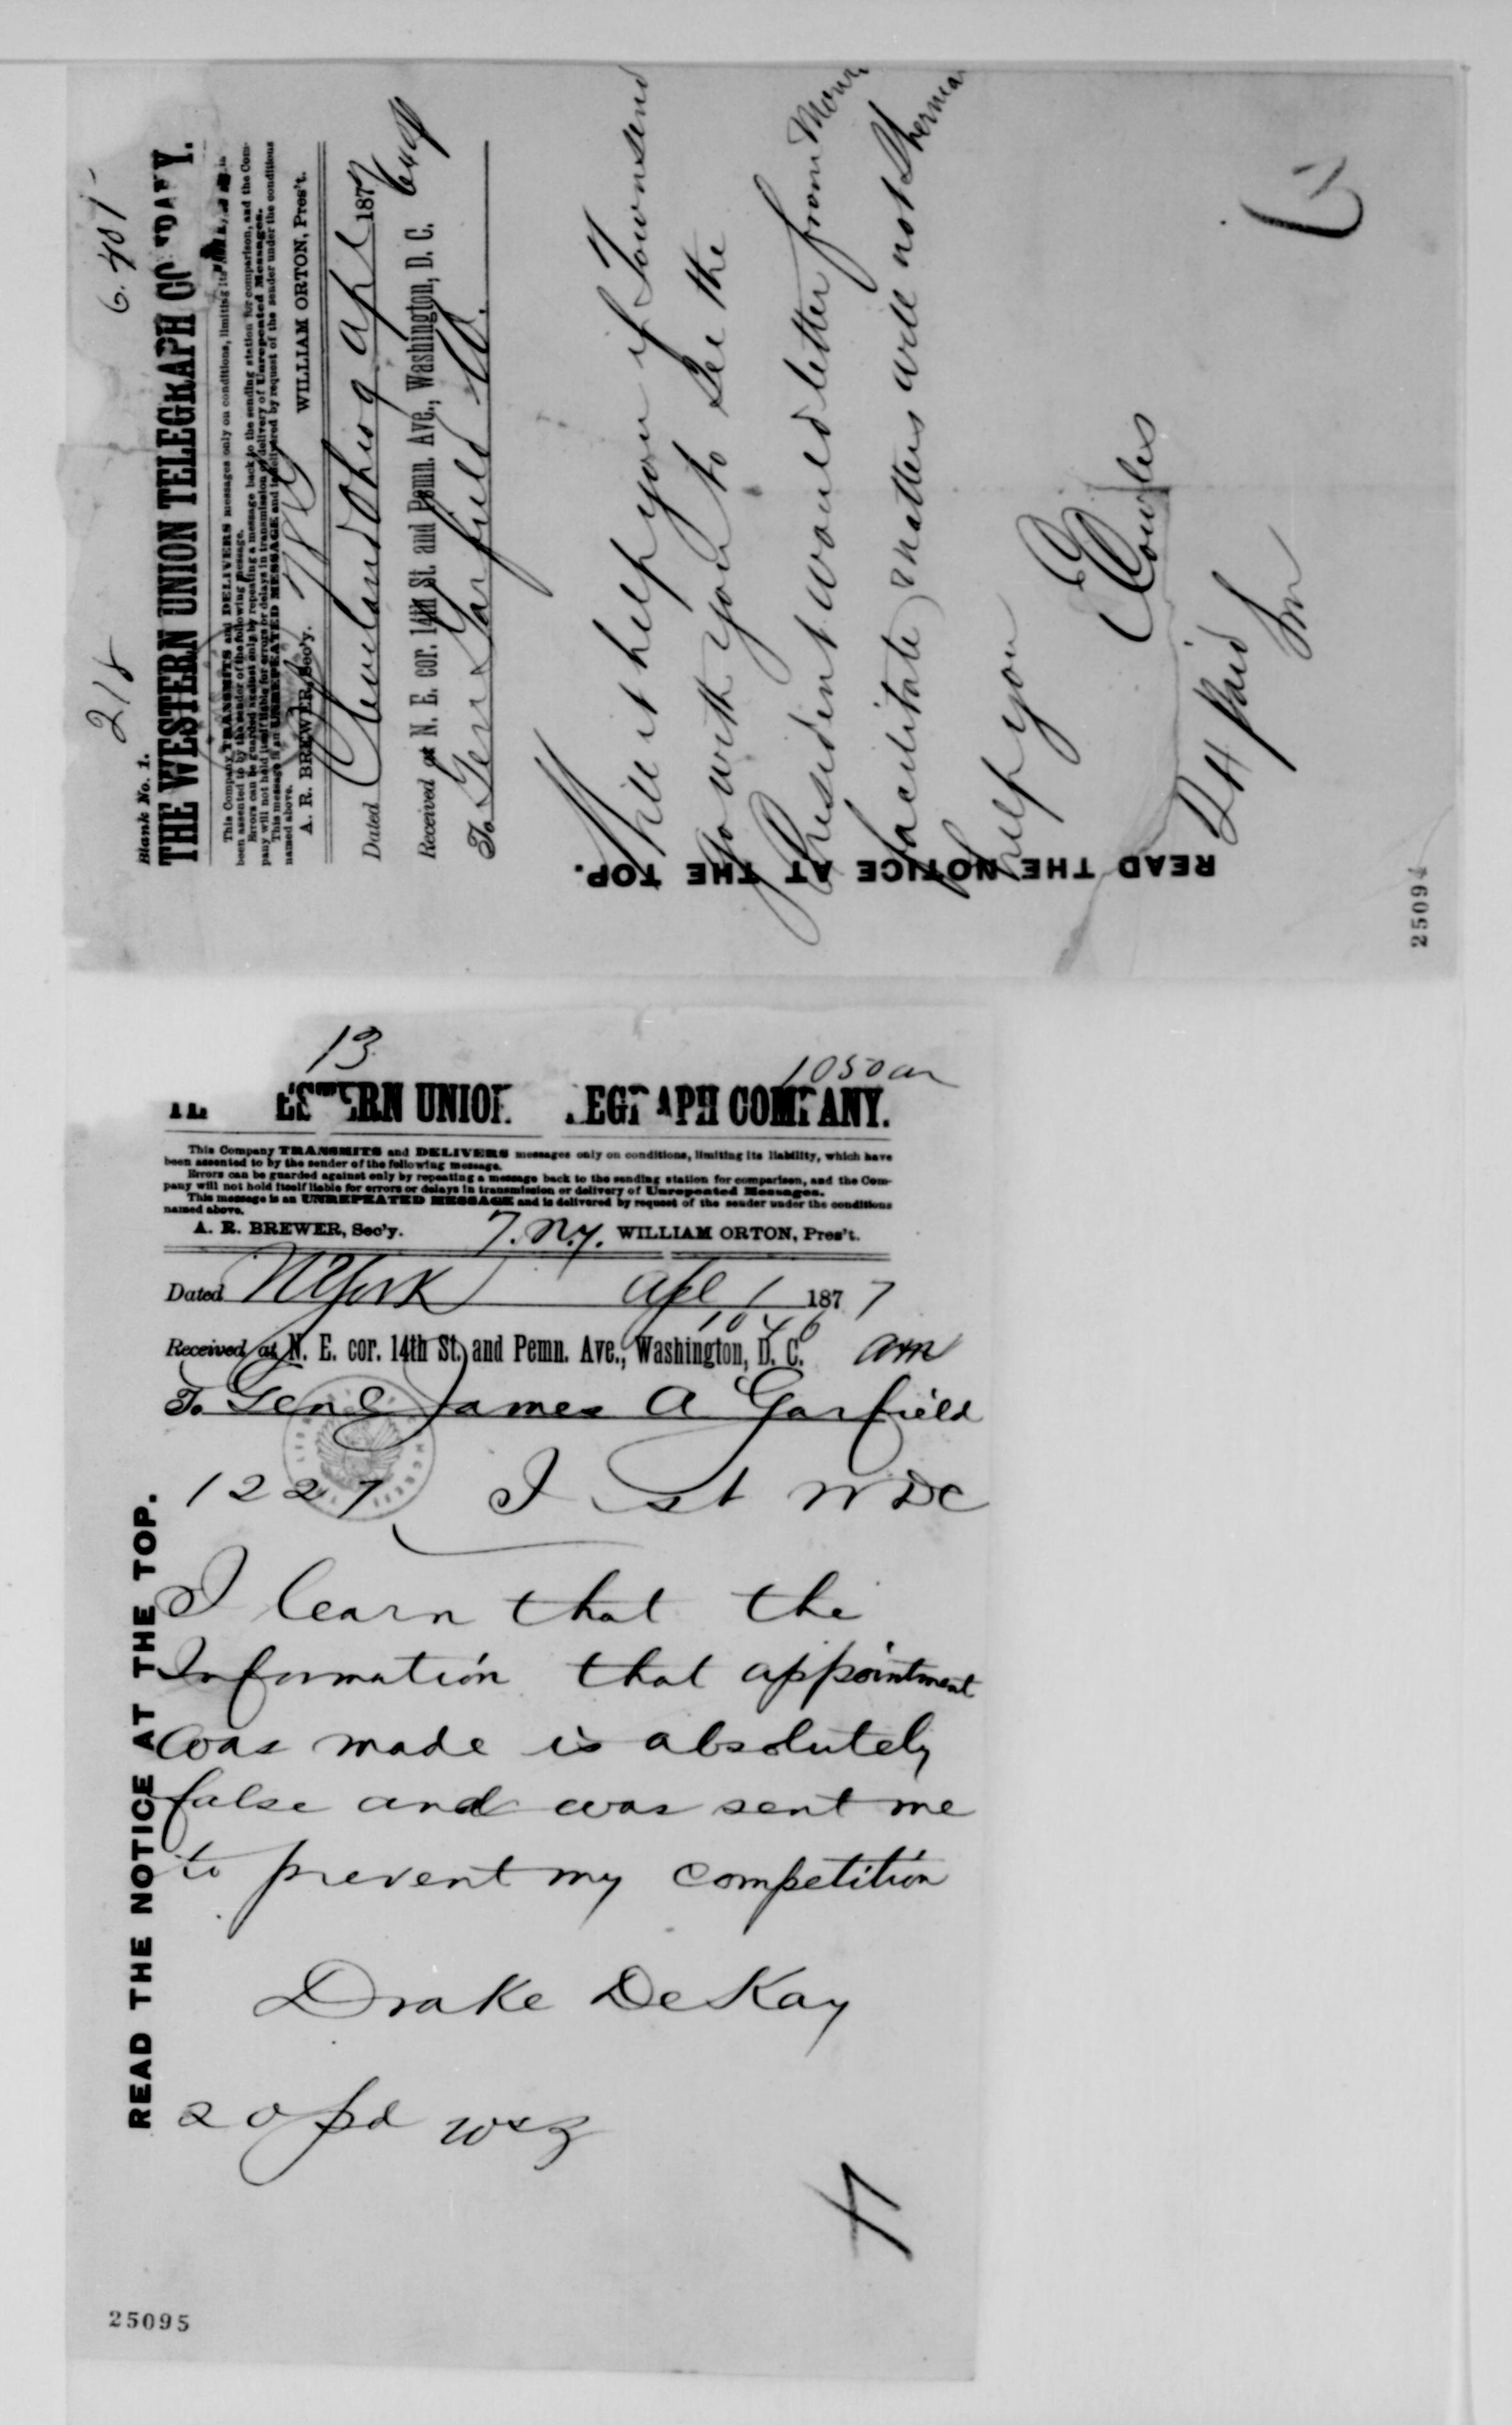 218 6.40
Blank No. 1.
THE WESTERN UNION TELEGRAPH COMPANY.
This Company TRANSMITS and DELIVERS messages only on conditions, limiting its
been assented to by the sender of the following message.
Errors can be guarded against only by repeating a message back to the sending station for comparison, and the Com-
pany will not hold itself liable for errors or delays in transmission or delivery of Unrepeated Messages.
This message is an UNREPEATED MESSAGE and is delivered by request of the sender under the conditions
named above.
A. R. BREWER, Sec'y. WILLIAM ORTON, Pres't.
Dated Cleveland Ohio 9 Apl 1877
Received at N. E. cor. 14th St. and Penn. Ave., Washington, D. C.
To Genl Garfield
Will it help you if Townsend
go with you to see the
President would letter from
facilitate matters will not Sherman
help you
E Cowles
24 Paid
READ THE NOTICE AT THE TOP.
25094
13 1050am
ESTERN UNION TELEGRAPH COMPANY.
This Company TRANSMITS and DELIVERS messages only on conditions, limiting its liability, which have
been assented to by the sender of the following message.
Errors can be guarded against only by repeating a message back to the sending station for comparison, and the Com-
pany will not hold itself liable for errors or delays in transmission or delivery of Unrepeated Messages.
This message is an UNREPEATED MESSAGE and is delivered by request of the sender under the conditions
named above.
A. R. BREWER, Sec'y. 7. N.Y. WILLIAM ORTON, Pres't.
Dated N York Apl 1 1877
1046
Received at N. E. cor. 14th St. and Penn. Ave., Washington, D. C. am
To Genl James A Garfield
1227 I st W DC
I learn that the
Information that appointment
was made is absolutely
false and was sent me
to prevent my competition
Drake DeKay
20 pd
READ THE NOTICE AT THE TOP.
25095